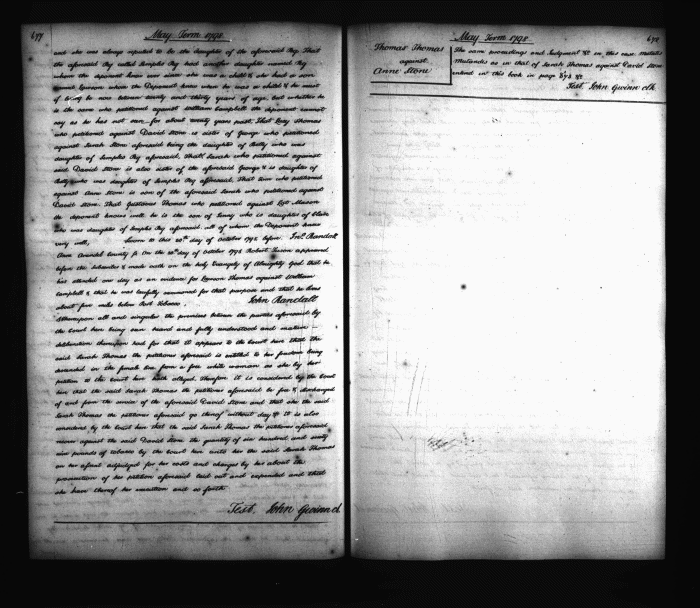 677 May Term 1798
and she was always reputed to be the daughter of the aforesaid Peg. That
the aforesaid Peg called Semples Peg had another daughter named Peg
whom the deponent knew ever since she was a child & she had a son
named Lawson whom the Deponent knew when he was a child & he must
be now between twenty and thirty years of age, but whether he
is the same who petitioned against William Campbell the deponent cannot
say as he has not seen for about twenty years past. That Lucy Thomas
who petitioned against David Stone is sister of George who petitioned
against Sarah Stone aforesaid being the daughter of Betty who was
daughter of Semples Peg aforesaid. That Sarah who petitioned against
said David Stone is also sister of the aforesaid George & is daughter of
Betty who was daughter of Semples Peg aforesaid, That who petitioned
against Ann Stone is son of the aforesaid Sarah who petitioned against
David Stone. That Thomas who petitioned against Mason
the deponent knows well he is the son of who is daughter of
who was daughter of Semples Peg aforesaid all of whom the Deponent knew
very well, Sworn to this 20th day of October 1798 before Jno. Randall
Ann Arundel County sc On the 20th day of October 1798 Robert appeared
before the subscriber & made oath on the holy Evangely of Almighty God that he
has attended one day as an evidence for Lawson Thomas against William
Campbell & that he was lawfully summoned for that purpose and that he lives
about five miles below Port Tobacco. John Randall
Whereupon all and singular the premises between the parties aforesaid by
the Court here being seen heard and fully understood and mature
deliberation thereupon had for that it appears to the Court here that the
said Sarah Thomas the petitioner aforesaid is entitled to her freedom being
descended in the female line from a free white woman as she by her
petition to the Court here hath alleged. Therefore it is considered by the Court
here that the said Sarah Thomas the petitioner aforesaid be free & discharged
of and from the service of the aforesaid David Stone and that she the said
Sarah Thomas the petitioner aforesaid go thereof without day &c It is also
considered by the Court here that the said Sarah Thomas the petitioner aforesaid
recover against the said David Stone the quantity of six hundred and sixty
six pounds of tobacco by the Court here unto her the said Sarah Thomas
on her assent adjudged for her costs and charges by her about the
prosecution of her petition aforesaid laid out and expended and that
she have thereof her execution and so forth
Test. John Gwinn cl
May Term 1798 678
Thomas Thomas
against
Anne Stone
The same proceedings and Judgment &c in this case Mutatis
Mutandis as in that of Sarah Thomas against David Stone
entered in this book in page 673 &c
Test. John Gwinn clk